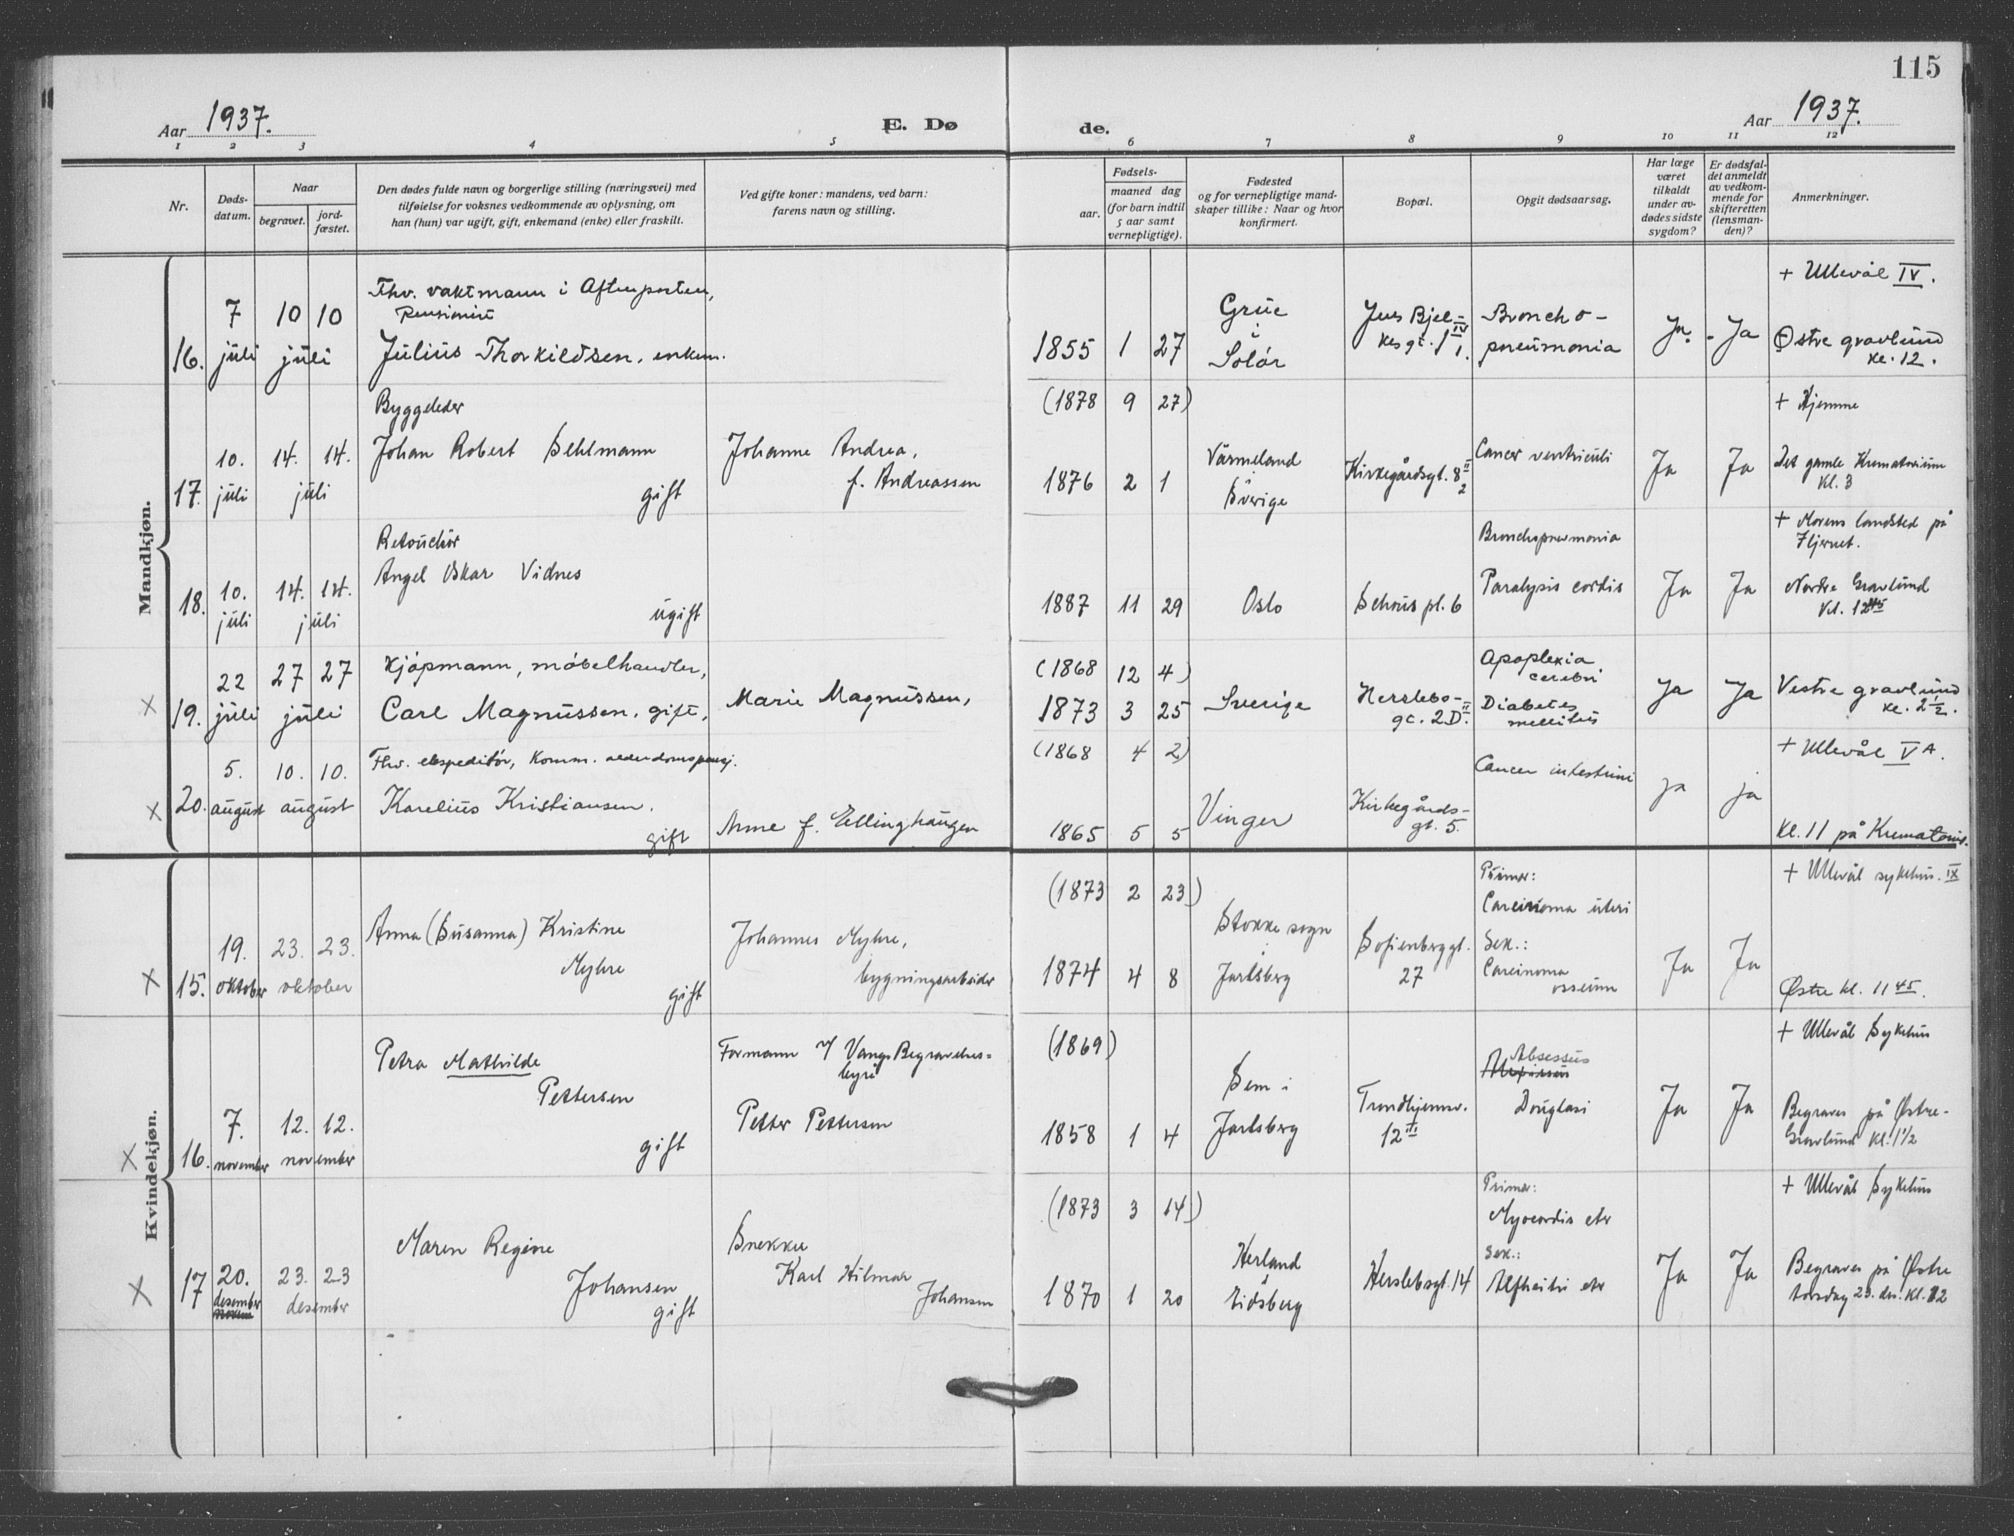 115
Aar 1937.
E. Dø
de.
Aar 1937.
1 2 3 4 5 6 7 8 9 10 11 12
Nr.
Døds-
datum.
Naar
begravet.
jord-
fæstet.
Den dødes fulde navn og borgerlige stilling (næringsvei) med
tilføielse for voksnes vedkommende av oplysning, om
han (hun) var ugift, gift, enkemand (enke) eller fraskilt.
Ved gifte koner: mandens, ved barn:
farens navn og stilling.
Fødsels-
aar.
maaned dag
(for barn indtil
5 aar samt
vernepligtige).
Fødested
og for vernepligtige mand-
skaper tillike: Naar og hvor
konfirmert.
Bopæl.
Opgit dødsaarsag.
Har læge
været
tilkaldt
under av-
dødes sidste
sygdom?
Er dødsfal-
det anmeldt
av vedkom-
mende for
skifteretten
(lensman-
den)?
Anmerkninger.
Mandkjøn.
16.
7
juli
10 10
juli
Fhv. vaktmann i Aftenposten,
Pensionist
Julius Thorkildsen, enkem.
1855 1 27
Grue
i
Solør
Jens Bjel-
kes gt. 1 IV
1.
Broncho-
pneumonia
Ja.
Ja
+ Ullevål IV.
Østre gravlund
kl. 12.
17.
10.
juli
14. 14.
juli
Byggeleder
Johan Robert Sehlmann
gift
Johanne Andrea,
f. Andreassen
(1878 9 27)
1876 2 1
Värmeland
i
Sverige
Kirkegårdsgt. 8 II
2
Cancer ventriculi
Ja
Ja
+ Hjemme
Det gamle Krematorium
kl. 3
18.
10.
juli
14. 14.
juli
Retouchør
Angel Oskar Vidnes
ugift
1887 11 29
Oslo
Schous pl. 6
Bronchopneumonia
Paralysis cordis
Ja
Ja
+ Morens landsted på
Fljernet.
Nordre Gravlund
kl. 12 45
X
19.
22
juli
27 27
juli
Kjøpmann, møbelhandler,
Carl Magnussen, gift,
Marie Magnussen,
(1868 12 4)
1873 3 25
Sverige
Herslebs-
gt. 2 D. II
Apoplexia
cerebri.
Diabetes
mellitus
Ja
Ja
Vestre gravlund
kl. 2 1/2.
X
20.
5.
august
10. 10.
august
Fhv. ekspeditør, Komm. alderdomspensj.
Karelius Kristiansen.
gift
Anne f. Ellinghaugen
(1868 4 2)
1865 5 5
Vinger
Kirkegårds-
gt. 5.
Cancer intestini
ja
ja
+ Ullevål V A.
Kl. 11 på Krematoriet.
Kvindekjøn.
X
15.
19.
oktober
23. 23.
oktober
Anna (Susanna) Kristine
Myhre
gift
Johannes Myhre,
bygningsarbeider
(1873 2 23)
1874 4 8
Stokke sogn
i
Jarlsberg
Sofienberggt.
27
Primær:
Carcinoma uteri
Sek.:
Carcinoma
osseum
Ja
Ja
+ Ullevål sykehus. IX
Østre kl. 11 45.
X
16.
7.
november
12. 12.
november
Petra Mathilde
Pettersen
gift
Formann v/ Vangs Begravelses=
byrå
Petter Pettersen
(1869)
1858 1 4
Sem i
Jarlsberg
Trondhjemsv.
12 III
Absessus
Douglasi
Ja
Ja
+ Ullevål Sykehus
Begraves på Østre-
Gravlund kl. 1 1/2
X
17
20.
desember
23. 23
desember
Maren Regine
Johansen
gift
Snekker
Karl Hilmar
Johansen
(1873 3 14)
1870 1 20
Herland
i
Eidsberg
Herslebsgt. 14
Primær:
Myocordis etr
Sek.:
Ja
Ja
+ Ullevål Sykehus
Begraves på Østre
torsdag 23. des. kl. 12